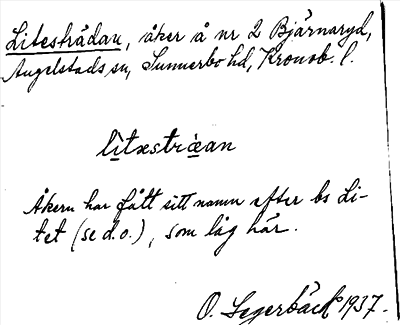 Litesträdan, åker å nr 2 Bjärnaryd,
Angelstads sn, Sunnerbo hd, Kronob. l.
lìtæstræ̀an
Åkern har fått sitt namn efter bs Li-
tet (se d.o.), som låg här.
O. Segerbäck 1937.